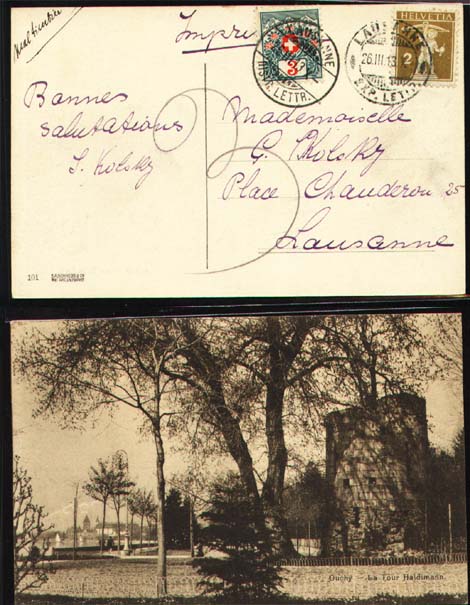 Imprimé
LAUSANNE
3
DISTR. LETTR.
LAUSANNE
26.III.13
EXP. LETT.
HELVETIA
2
Bonnes
salutations
S. Kolsky
Mademoiselle
G. Kolsky
Place Chauderon 25
Lausanne
101
Ouchy - La Tour Haldimann.